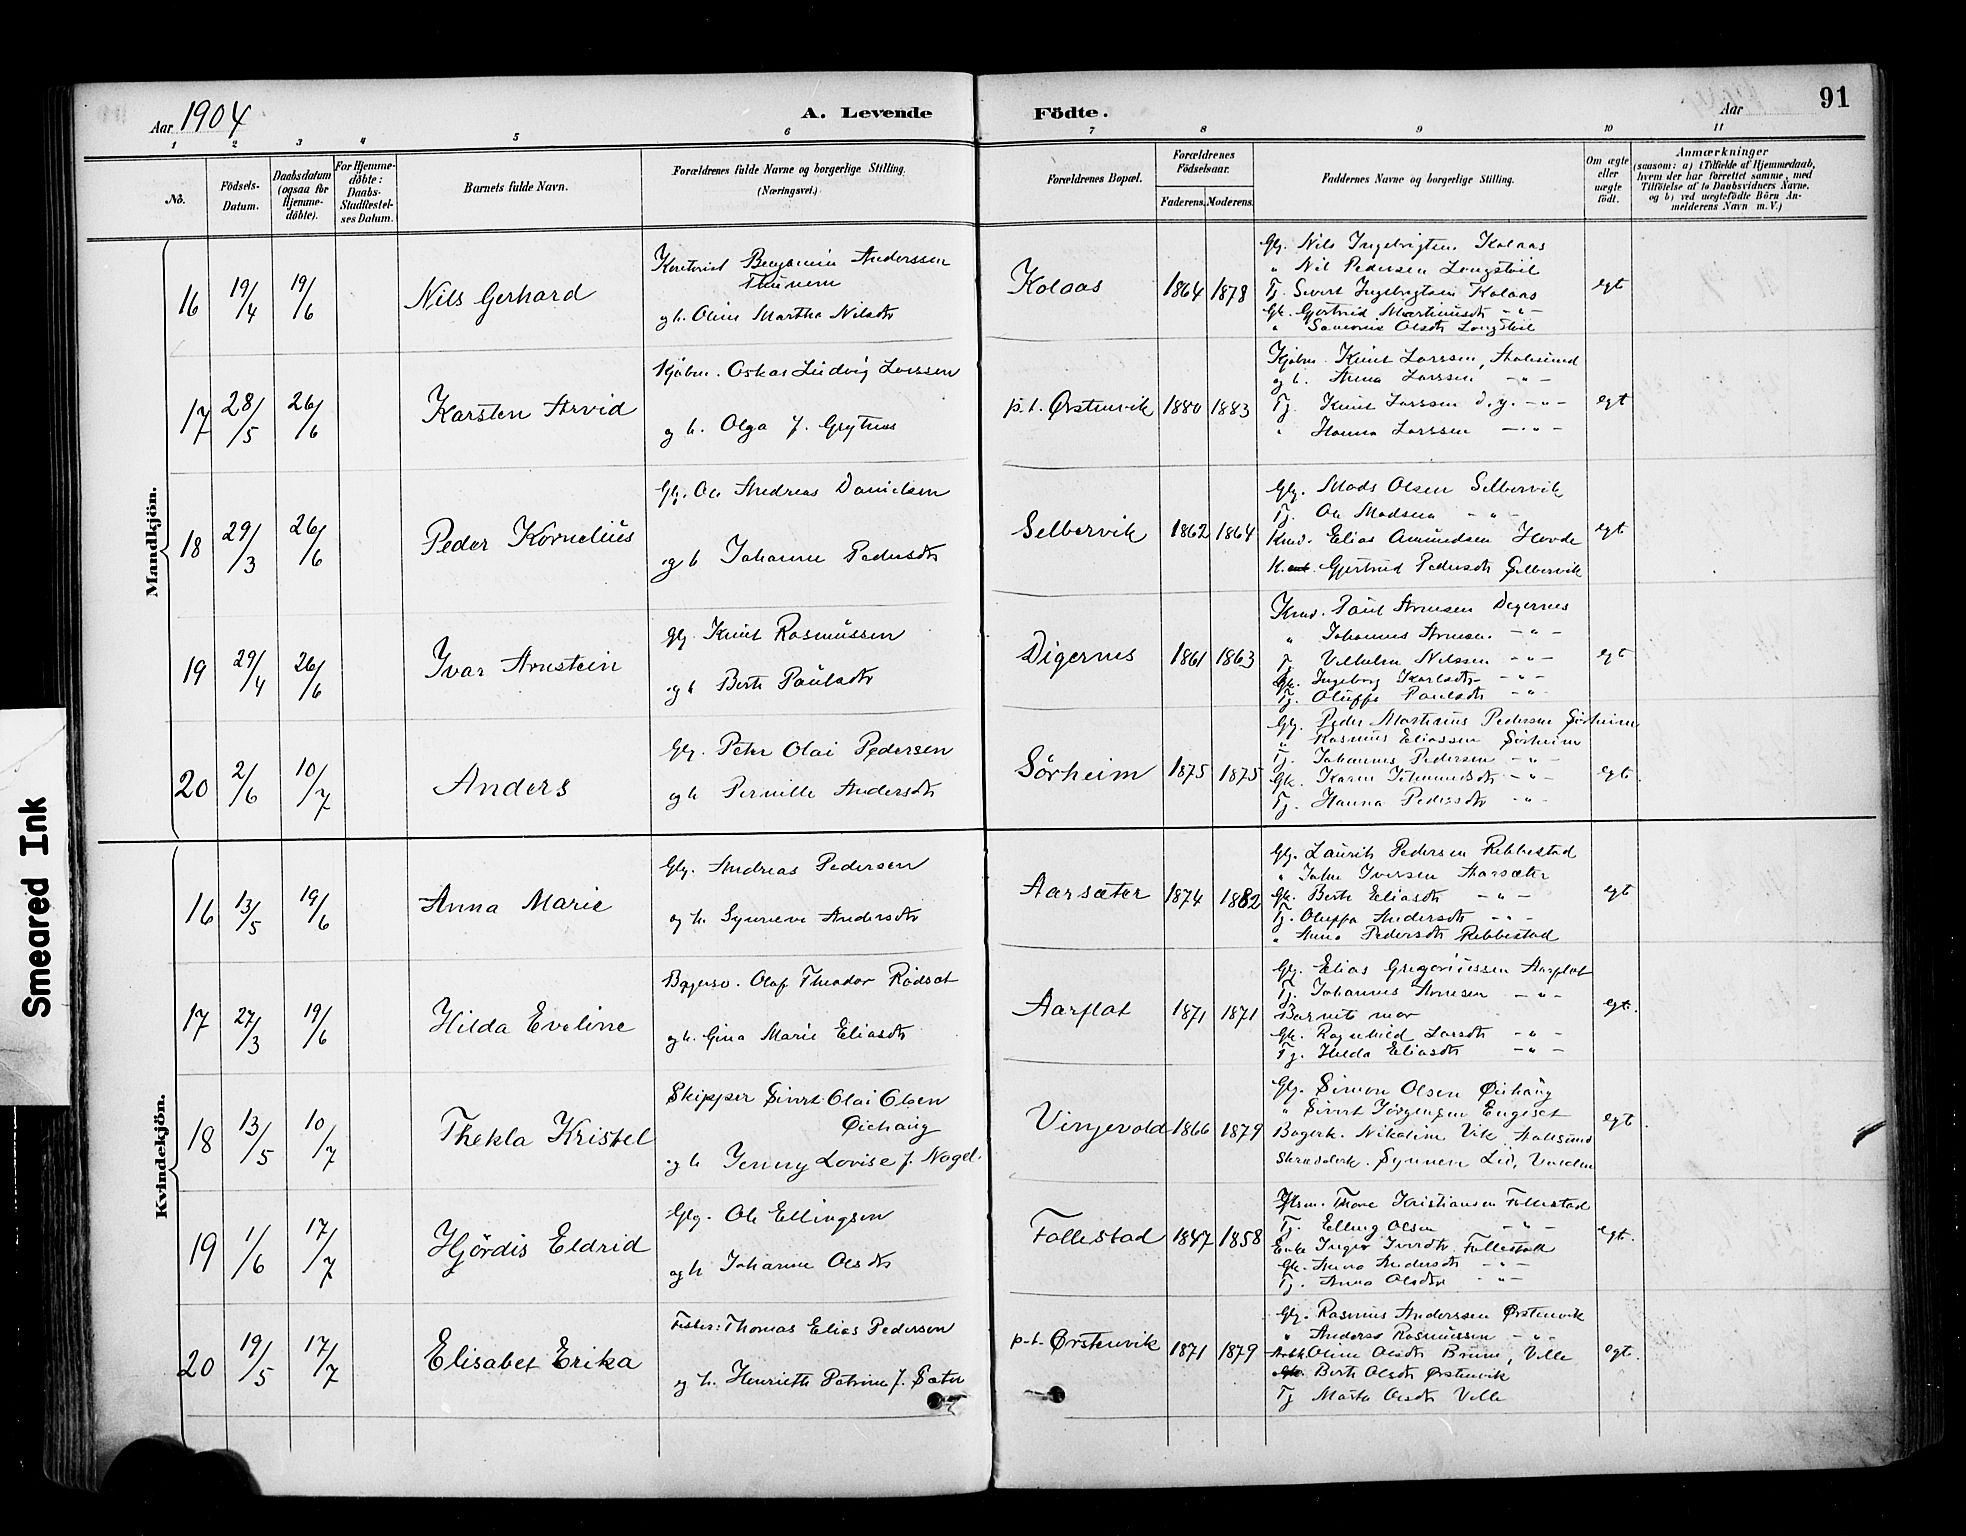 91
Aar 1904
A. Levende Födte.
Aar
1 2 3 4 5 6 7 8 9 10 11
No.
Födsels-Datum.
Daabsdatum (ogsaa for Hjemme-döbte).
For Hjemme-döbte: Daabs-Stadfæstel-ses Datum.
Barnets fulde Navn.
Forældrenes fulde Navne og borgerlige Stilling. (Næringsvei.)
Forældrenes Bopæl.
Forældrenes Födselsaar.
Faderens. Moderens.
Faddernes Navne og borgerlige Stilling.
Om ægte eller uægte födt.
Anmærkninger
(saasom: a) i Tilfælde af Hjemmedaab, hvem der har forrettet samme, med Tilföielse af to Daabsvidners Navne, og b) ved uægtefödte Börn An-melderens Navn m. V.)
Mandkjön.
16 19/4 19/6 Nils Gerhard
Benjamin Anderssen
og h. Oline Martha Nilsdtr
Kolaas 1864 1878
Gbr. Nils Ingebrigtsen Kolaas
" Nil Pedersen Longstvil
Tj. Sivert Ingebrigtsen Kolaas
Gk. Gjertrud Martinusdtr -"-
" Olsdtr Longstvil
egt
17 28/5 26/6 Karsten Arvid
Kjøbm. Oskar Ludvig Larssen
og h. Olga f. Grytnes
p.t. Ørstenvik 1880 1883
Kjøbm. Knut Larssen, Aalesund
og h. Anna Larssen -"-
Tj. Knut Larssen d.y. -"-
" Hanna Larssen -"-
egt
18 29/3 26/6 Peder Kornelius
Gbr. Ole Andreas Danielsen
og h Johanne Pedersdtr
Selbervik 1862 1864
Gbr. Mads Olsen Selbervik
Tj. Ole Madsen -"-
Elias Amundsen Hovde
Gjertrud Pedersdtr Selbervik
egt
19 29/4 26/6 Ivar Arnstein
Gbr Knut Rasmussen
og h Berte Paulsdtr
Digernes 1861 1863
Paul Arnesen Digernes
" Johannes Arnesen -"-
Tj. Vilhelm Nilssen -"-
Gk. Ingeborg Karlsdtr -"-
Tj. Oluffe Paulsdtr -"-
egt
20 2/6 10/7 Anders
Gbr. Peter Olai Pedersen
og h Pernille Andersdtr
Sørheim 1875 1875
Gbr. Peder Martinus Pedersen Sørheim
" Rasmus Eliassen Sørheim
Tj. Johannes Pedersen -"-
Gk. Karen Johannesdtr -"-
Tj. Hanna Pedersdtr -"-
egt
Kvindekjön.
16 13/5 19/6 Anna Marie
Gbr. Andreas Pedersen
og h. Synneve Andersdtr
Aarsæter 1874 1882
Gbr. Laurits Pedersen Rebbestad
" John Iversen Aarsæter
Gk. Berte Eliasdtr -"-
Tj. Oluffa Andersdtr -"-
" Anna Pedersdtr Rebbestad
egt
17 27/3 19/6 Hilda Eveline
Olaf Theodor Rødset
og h. Gina Marie Eliasdtr
Aarflot 1871 1871
Gbr. Elias Gregoriussen Aarflot
Tj. Johannes Arnesen -"-
Barnets mor
Gk. Ragnhild Larsdtr -"-
Tj. Hilda Eliasdtr -"-
egt.
18 13/5 10/7 Thekla Kristel
Skipper Sivert Olai Olsen
Øiehaug
og h Jenny Lovise f. Nagel.
Vinjevold 1866 1879
Gbr. Simon Olsen Øiehaug
" Sivert Jørgensen Engeset
Bagerk. Nikoline Vik Aalesund
Skrædderk. Synneve Lid, Volden
egt
19 1/6 17/7 Hjørdis Eldrid
Gbr. Ole Ellingsen
og h Johanne Olsdtr
Follestad 1847 1858
Thore Kristiansen Follestad
Tj. Elling Olsen -"-
Enke Inger Iversdtr Follestad
Gk. Anna Andersdtr -"-
Tj. Anna Olsdtr -"-
egt.
20 19/5 17/7 Elisabet Erika
Fisker: Thomas Elias Pedersen
og h. Henriette Petrine f. Sæter
p.t. Ørstenvik 1871 1879
Gbr. Rasmus Anderssen Ørstenvik
" Anders Rasmussen -"-
Oline Olsdtr Brune, Velle
Berte Olsdtr Ørstenvik
Tj Marte Olsdtr Velle
egt.
Smeared Ink